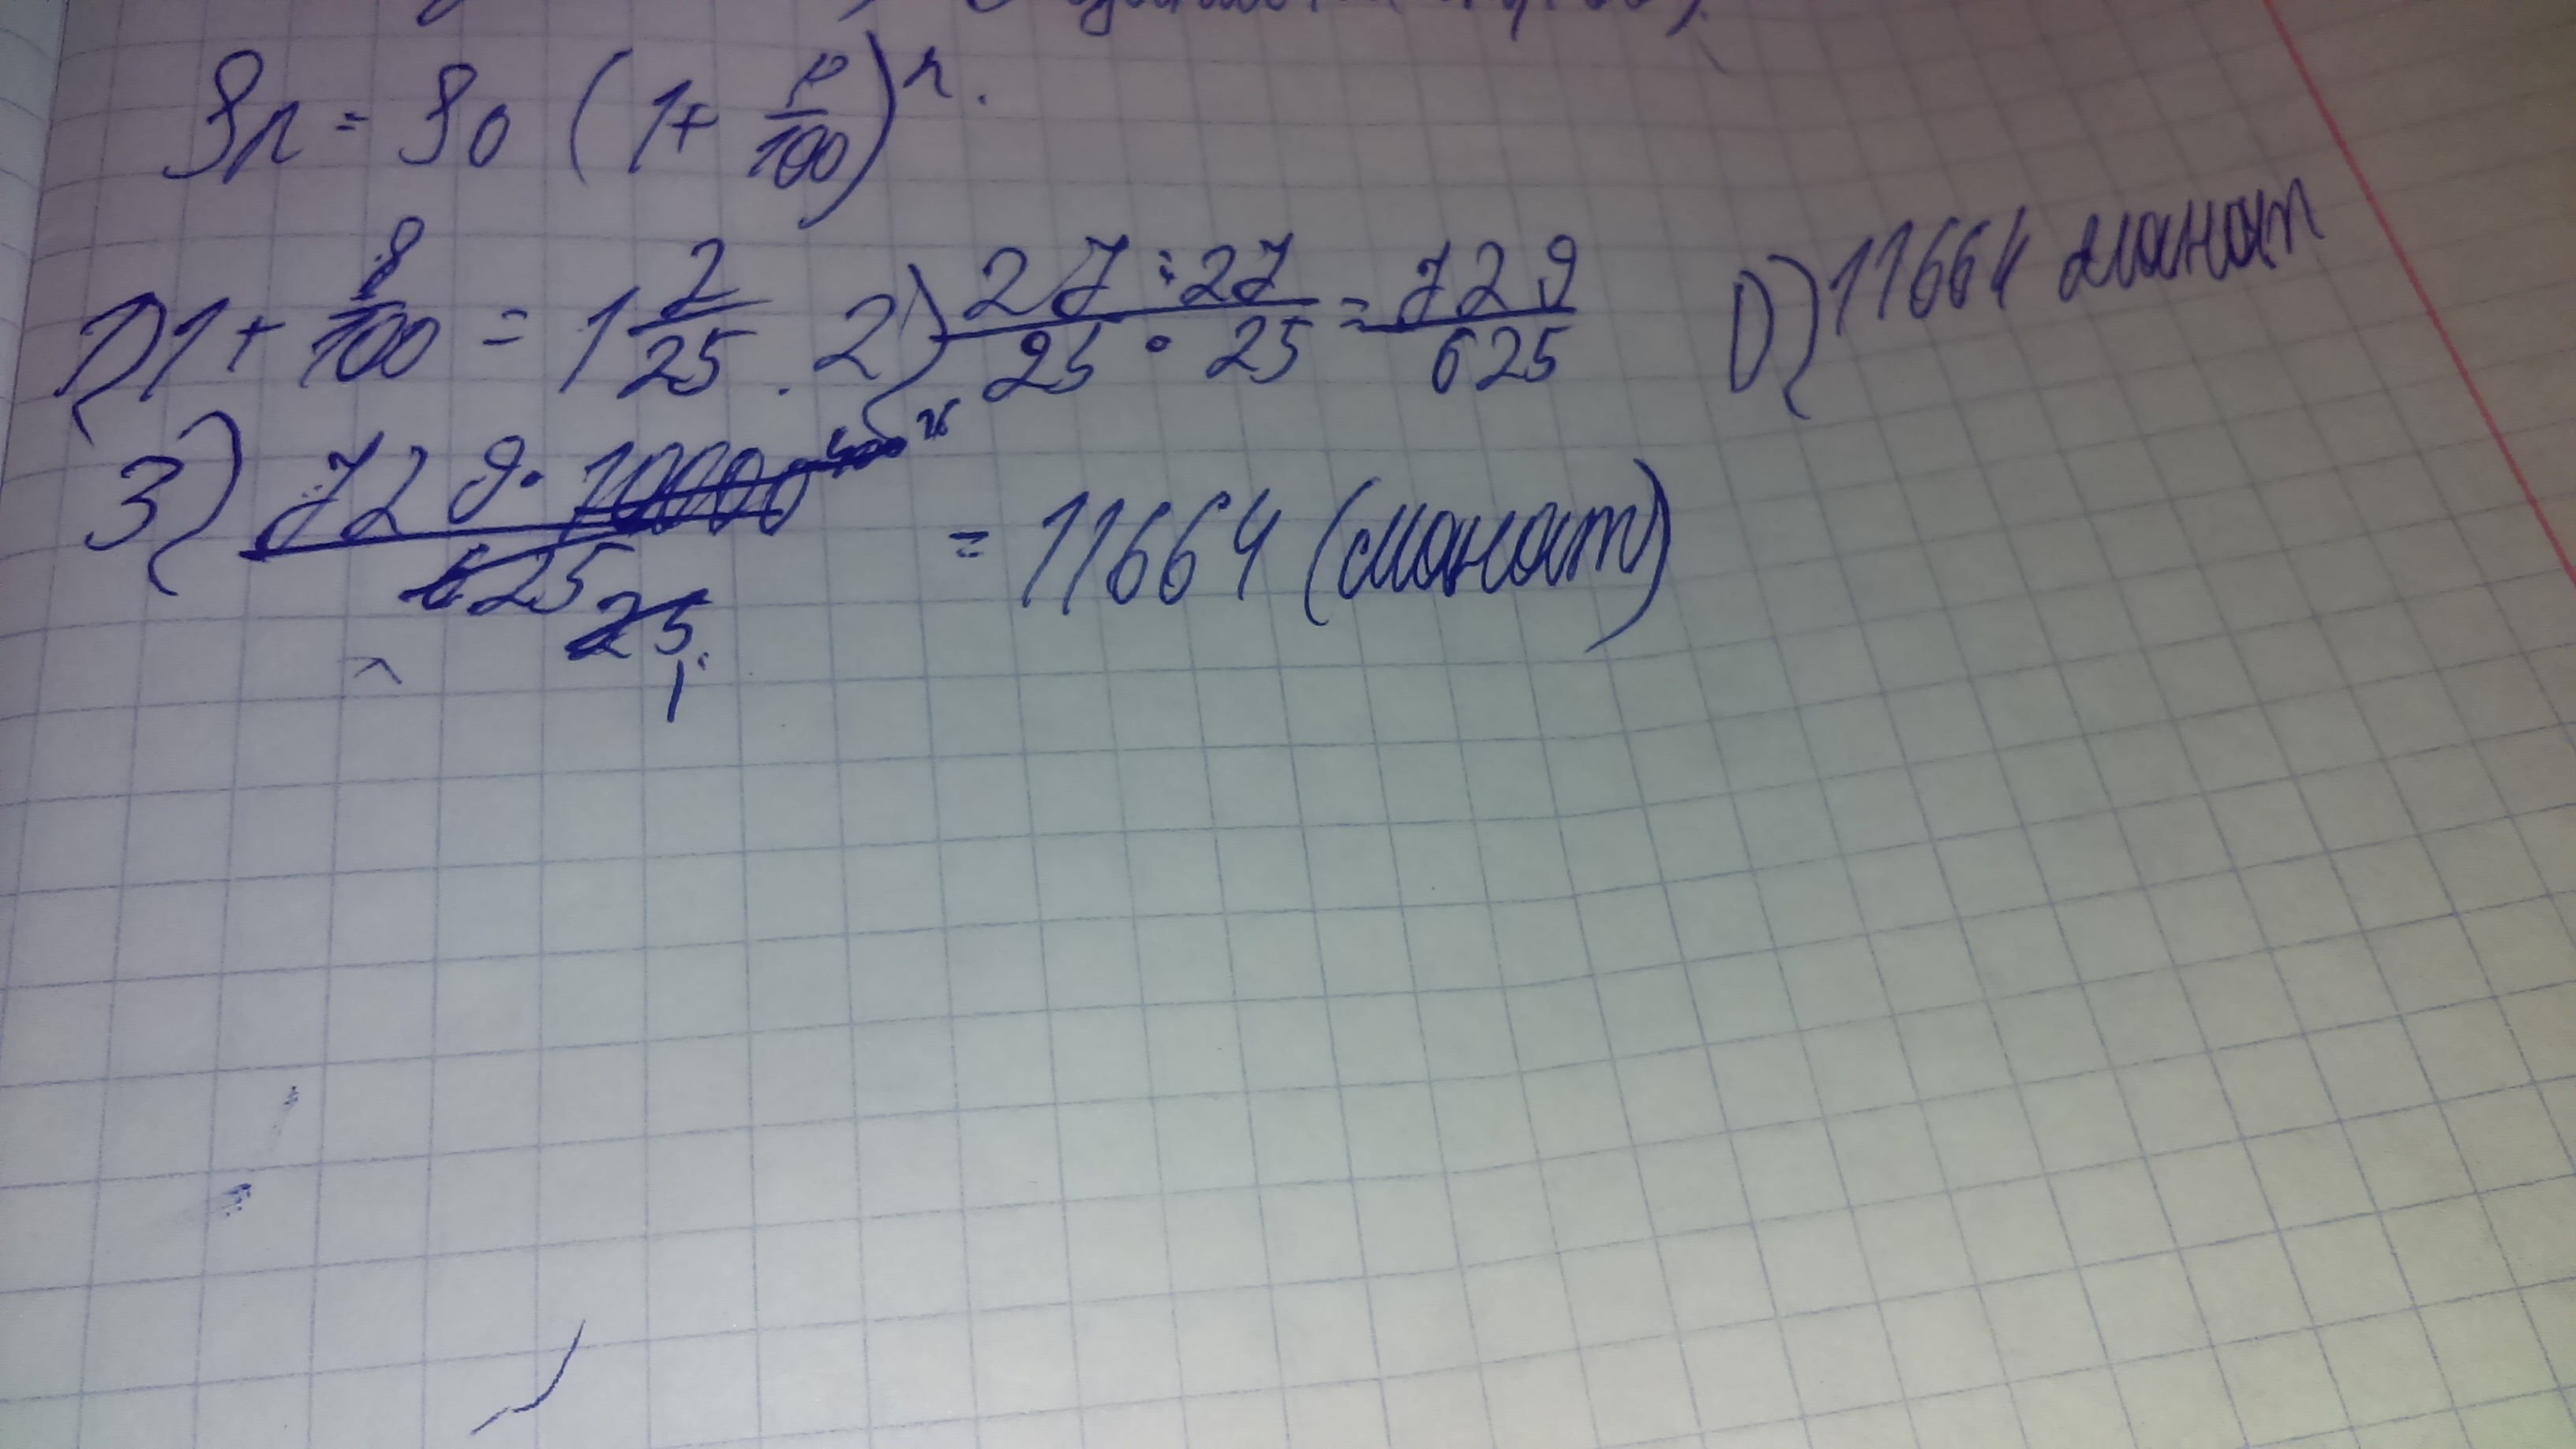 Sn = S0 (1 + p/100)^n.
1) 1 + 8/100 = 1 2/25. 2) 27 · 27 / 25 · 25 = 729/625 D) 11664 манат
3) 729 · 10000 400 16 / 625 25 1 = 11664 (манат)